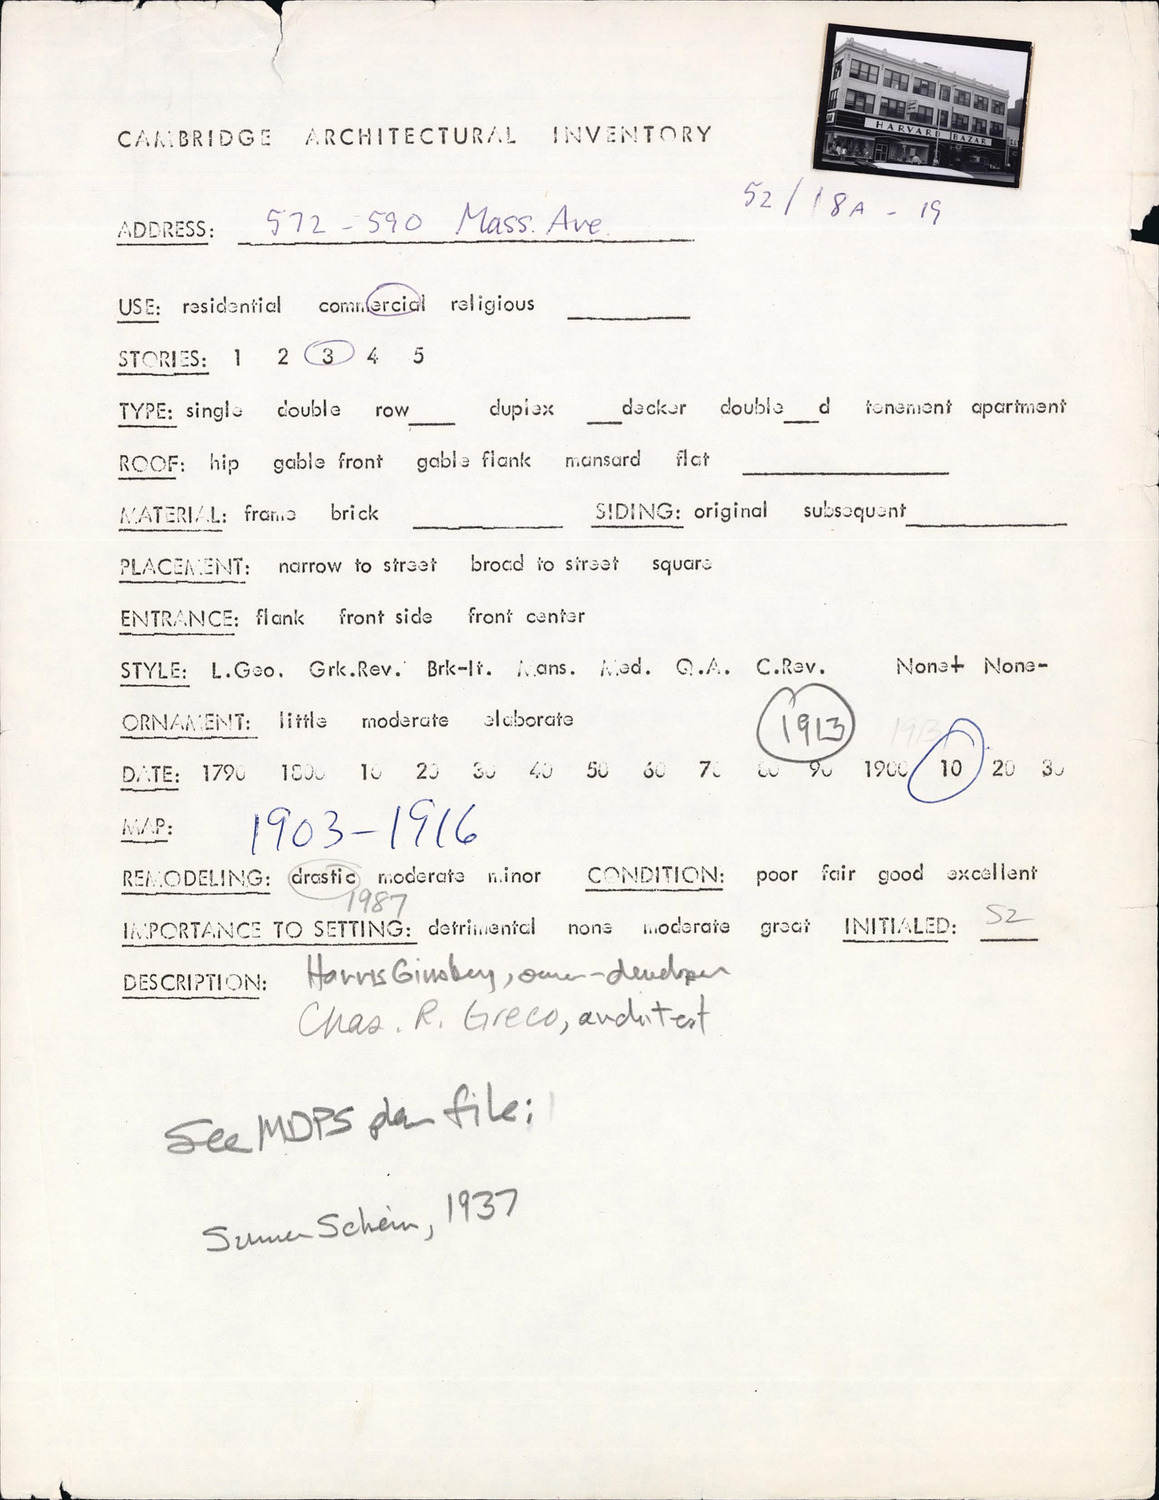 HARVARD BAZAR
CAMBRIDGE ARCHITECTURAL INVENTORY
52/18A - 19
ADDRESS: 572-590 Mass. Ave.
USE: residential commercial religious
STORIES: 1 2 3 4 5
TYPE: single double row____ duplex ____decker double____d tenement apartment
ROOF: hip gable front gable flank mansard flat
MATERIAL: frame brick ____ SIDING: original subsequent____
PLACEMENT: narrow to street broad to street square
ENTRANCE: flank front side front center
STYLE: L.Geo. Grk.Rev. Brk-It. Mans. Med. Q.A. C.Rev. None+ None-
ORNAMENT: little moderate elaborate 1913 1913
DATE: 1790 1800 10 20 30 40 50 60 70 80 90 1900 10 20 30
MAP: 1903-1916
REMODELING: drastic moderate minor CONDITION: poor fair good excellent
1987
IMPORTANCE TO SETTING: detrimental none moderate great INITIALED: SZ
DESCRIPTION: Harris Ginsberg, owner-developer
Chas. R. Greco, architect
See MDPS plan file:
Sumner Schein, 1937